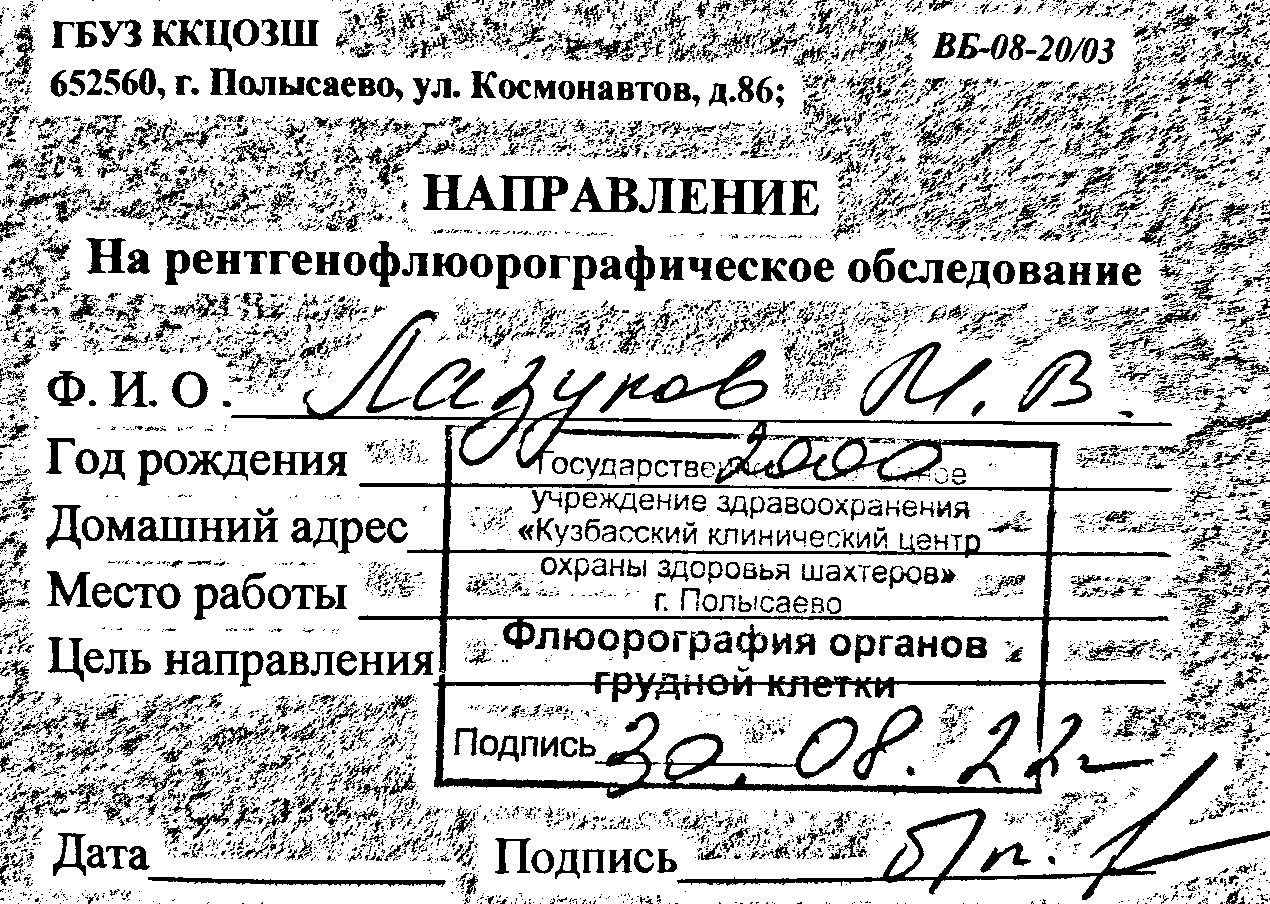 ГБУЗ ККЦОЗШ
ВБ-08-20/03
652560, г. Полысаево, ул. Космонавтов, д.86;
НАПРАВЛЕНИЕ
На рентгенофлюорографическое обследование
Ф. И. О. Лазуков М. В.
Год рождения 2000
Домашний адрес
Место работы
Цель направления
Государствен ное
учреждение здравоохранения
«Кузбасский клинический центр
охраны здоровья шахтеров»
г. Полысаево
Флюорография органов
грудной клетки
Подпись 30.08.22г
Дата Подпись